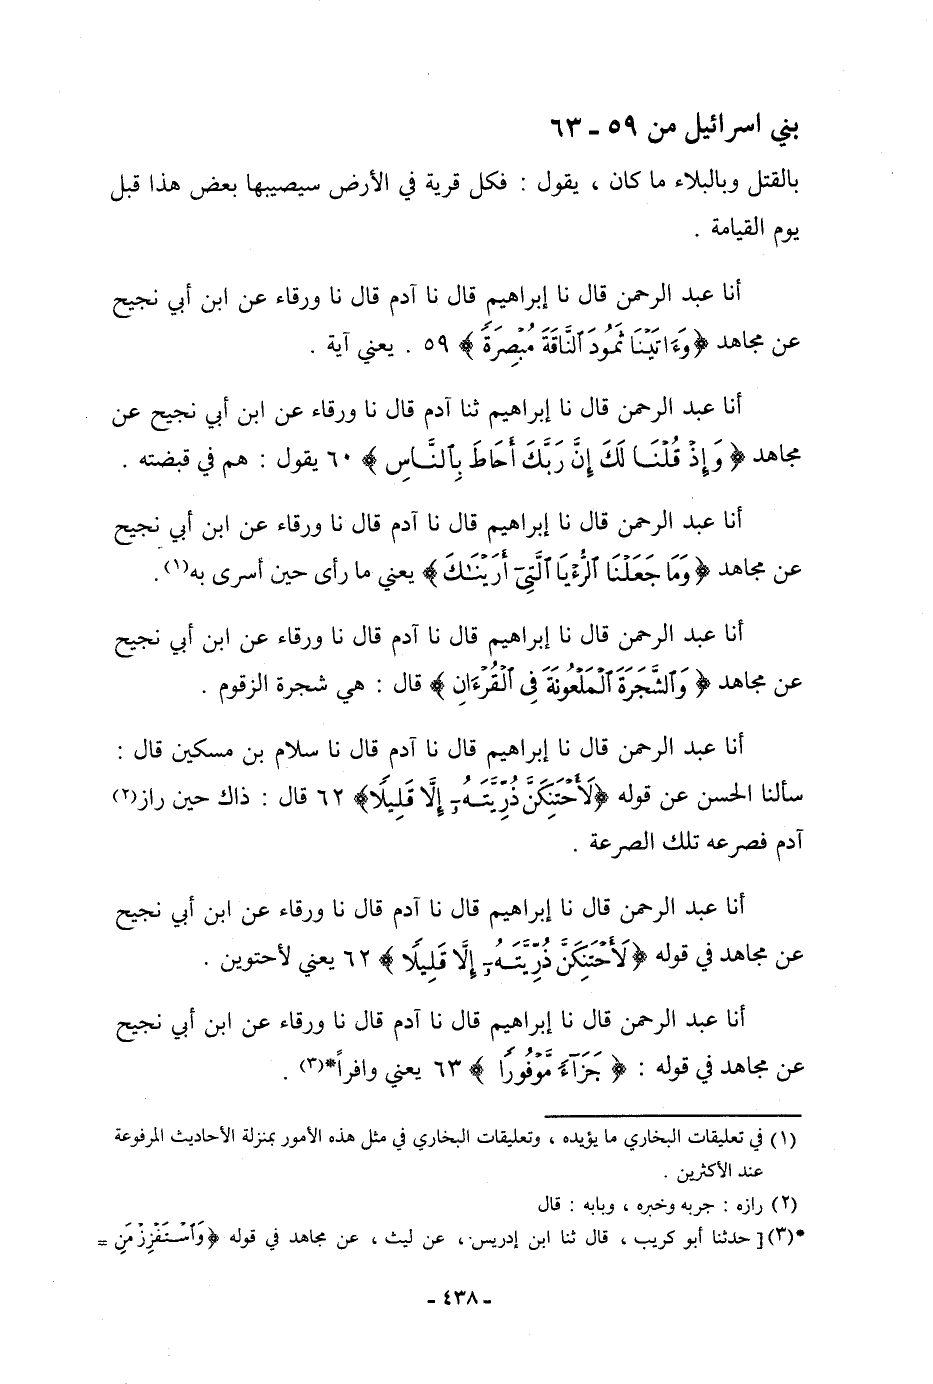 بني اسرائيل من ٥٩ - ٦٣
بالقتل وبالبلاء ما كان ، يقول : فكل قرية في الأرض سيصيبها بعض هذا قبل
يوم القيامة .
أنا عبد الرحمن قال نا إبراهيم قال نا آدم قال نا ورقاء عن ابن أبي نجيح
عن مجاهد ﴿وَءَاتَيْنَا ثَمُودَ ٱلنَّاقَةَ مُبْصِرَةً﴾ ٥٩ . يعني آية .
أنا عبد الرحمن قال نا إبراهيم ثنا آدم قال نا ورقاء عن ابن أبي نجيح عن
مجاهد ﴿وَإِذْ قُلْنَا لَكَ إِنَّ رَبَّكَ أَحَاطَ بِٱلنَّاسِ﴾ ٦٠ يقول : هم في قبضته .
أنا عبد الرحمن قال نا إبراهيم قال نا آدم قال نا ورقاء عن ابن أبي نجيح
عن مجاهد ﴿وَمَا جَعَلْنَا ٱلرُّءْيَا ٱلَّتِىٓ أَرَيْنَـٰكَ﴾ يعني ما رأى حين أسرى به(١).
أنا عبد الرحمن قال نا إبراهيم قال نا آدم قال نا ورقاء عن ابن أبي نجيح
عن مجاهد ﴿وَٱلشَّجَرَةَ ٱلْمَلْعُونَةَ فِى ٱلْقُرْءَانِ﴾ قال : هي شجرة الزقوم .
أنا عبد الرحمن قال نا إبراهيم قال نا آدم قال نا سلام بن مسكين قال :
سألنا الحسن عن قوله ﴿لَأَحْتَنِكَنَّ ذُرِّيَّتَهُۥٓ إِلَّا قَلِيلًا﴾ ٦٢ قال : ذاك حين راز(٢)
آدم فصرعه تلك الصرعة .
أنا عبد الرحمن قال نا إبراهيم قال نا آدم قال نا ورقاء عن ابن أبي نجيح
عن مجاهد في قوله ﴿لَأَحْتَنِكَنَّ ذُرِّيَّتَهُۥٓ إِلَّا قَلِيلًا﴾ ٦٢ يعني لأحتوين .
أنا عبد الرحمن قال نا إبراهيم قال نا آدم قال نا ورقاء عن ابن أبي نجيح
عن مجاهد في قوله : ﴿جَزَآءً مَّوْفُورًا﴾ ٦٣ يعني وافراً*(٣) .
(١) في تعليقات البخاري ما يؤيده ، وتعليقات البخاري في مثل هذه الأمور بمنزلة الأحاديث المرفوعة
عند الأكثرين .
(٢) رازه : جربه وخبره ، وبابه : قال
*(٣) [ حدثنا أبو كريب ، قال ثنا ابن إدريس ، عن ليث ، عن مجاهد في قوله ﴿وَٱسْتَفْزِزْ مَنِ =
- ٤٣٨ -